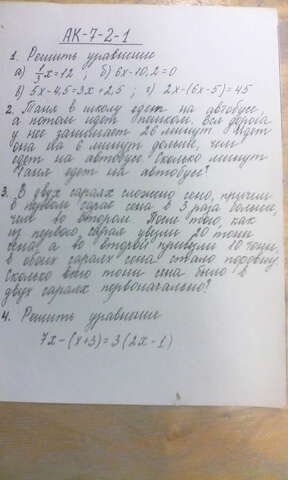 АК-7-2-1
1. Решить уравнение
а) 1/3 x = 12 ; б) 6x - 10,2 = 0
в) 5x - 4,5 = 3x + 2,5 ; г) 2x - (6x - 5) = 45
2. Таня в школу едет на автобусе,
а потом идет пешком. Вся дорога
у нее занимает 26 минут. Идет
она на 6 минут дольше, чем
едет на автобусе. Сколько минут
Таня едет на автобусе?
3. В двух сараях сложено сено, причем
в первом сарае сена в 3 раза больше,
чем во втором. После того, как
из первого сарая увезли 20 тонн
сена, а во второй привезли 10 тонн,
в обоих сараях сена стало поровну
Сколько всего тонн сена было в
двух сараях первоначально?
4. Решить уравнение
7x - (x + 3) = 3(2x - 1)